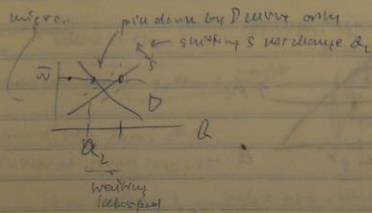 micro.
pin down by D curve only
shifting S not change Q2
S
w̄
D
Q
Q2
waiting